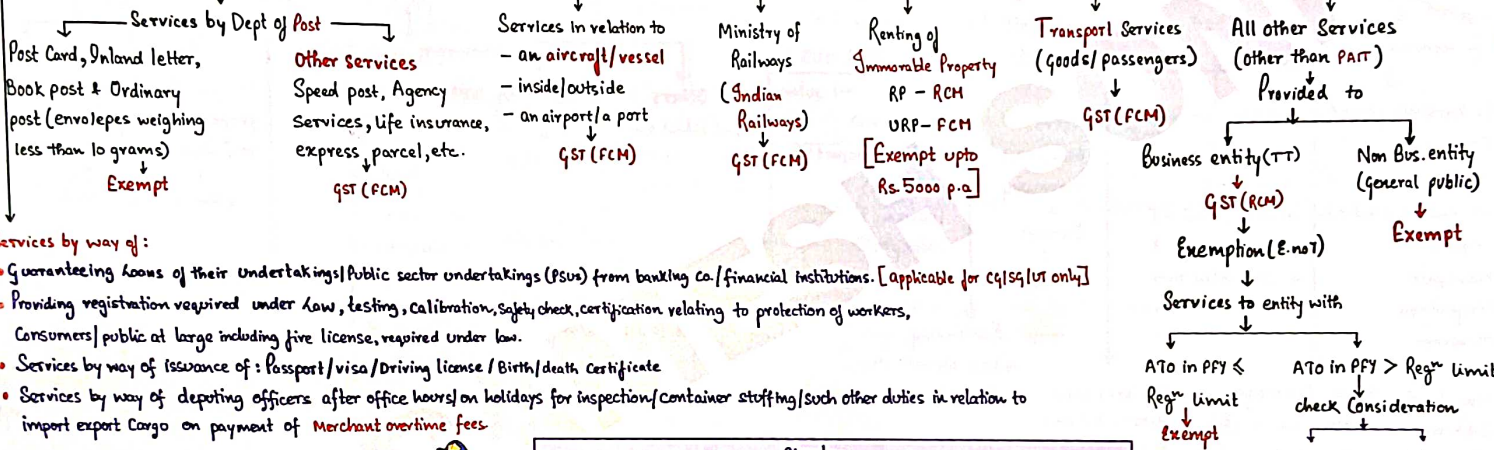 Services by Dept of Post
Post Card, Inland letter,
Book post & Ordinary
post (envolepes weighing
less than 10 grams)
Exempt
Other Services
Speed post, Agency
Services, life insurance,
express, parcel, etc.
GST (FCM)
Services In relation to
- an aircraft/vessel
- inside/outside
- an airport/a port
GST (FCM)
Ministry of
Railways
(Indian
Railways)
GST (FCM)
Renting of
Immovable Property
RP - RCM
URP- FCM
[Exempt upto
Rs. 5000 p.a]
Transport Services
(Goods/passengers)
GST (FCM)
All other Services
(other than PAIT)
Provided to
Business entity (TT)
GST (RCM)
Exemption (E.noT)
Services to entity with
ATO in PFY ≤
Regⁿ limit
Exempt
ATO in PFY > Regⁿ limit
check Consideration
Non Bus. entity
(General public)
Exempt
ervices by way of :
• Guaranteeing Loans of their undertakings/Public sector undertakings (PSUs) from banking co./financial institutions. [applicable for CG/SG/UT only]
• Providing registration required under Law, testing, calibration, Safety check, certification relating to protection of workers,
Consumers/public at large including fire license, required under law.
• Services by way of issuance of : Passport/visa/Driving license/Birth/death Certificate
• Services by way of deputing officers after office hours/on holidays for inspection/container stuffing/such other duties in relation to
import export Cargo on payment of Merchant overtime fees